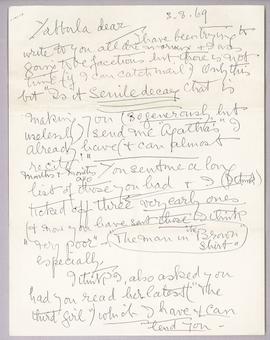 Yabbula dear 3.8.69
I have been trying to
write to you all the morning & I was
going to be facetious but there is not
time (if I can catch mail) Only this
but "Is it Senile decay that is
making you (so generously but
uselessly) send me Agathas I
already have (& can almost
recite)!" You sent me a long
months & months ago
list of those you had & I (I think)
ticked off three very early ones
(& now you have sent those I think
"very poor" - "The man in the Brown
Suit"
especially.
I think I also asked you
had you read her latest ("The
third girl") which I have & can
lend you -